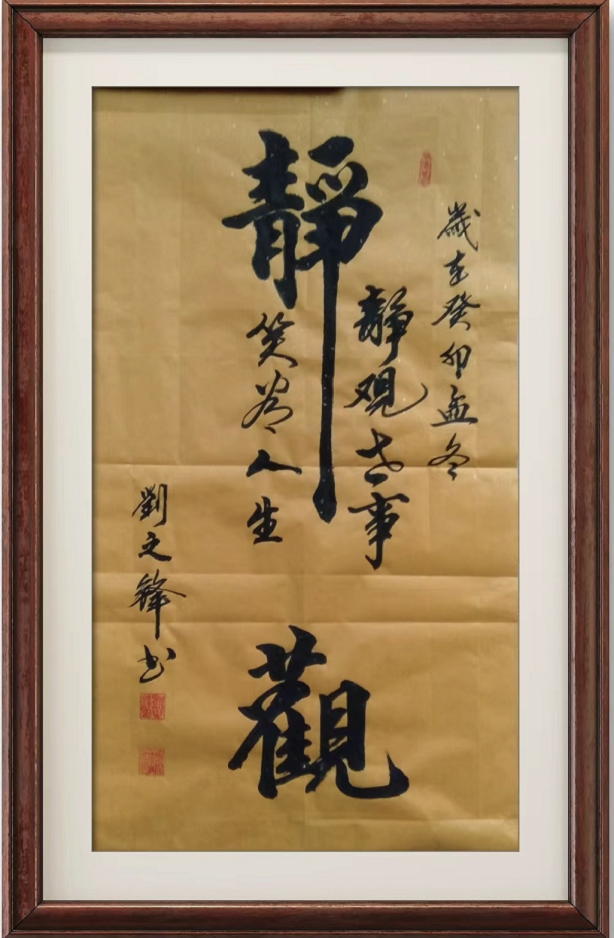 歲在癸卯孟冬
靜观世事
靜觀
笑看人生
劉文鋒书